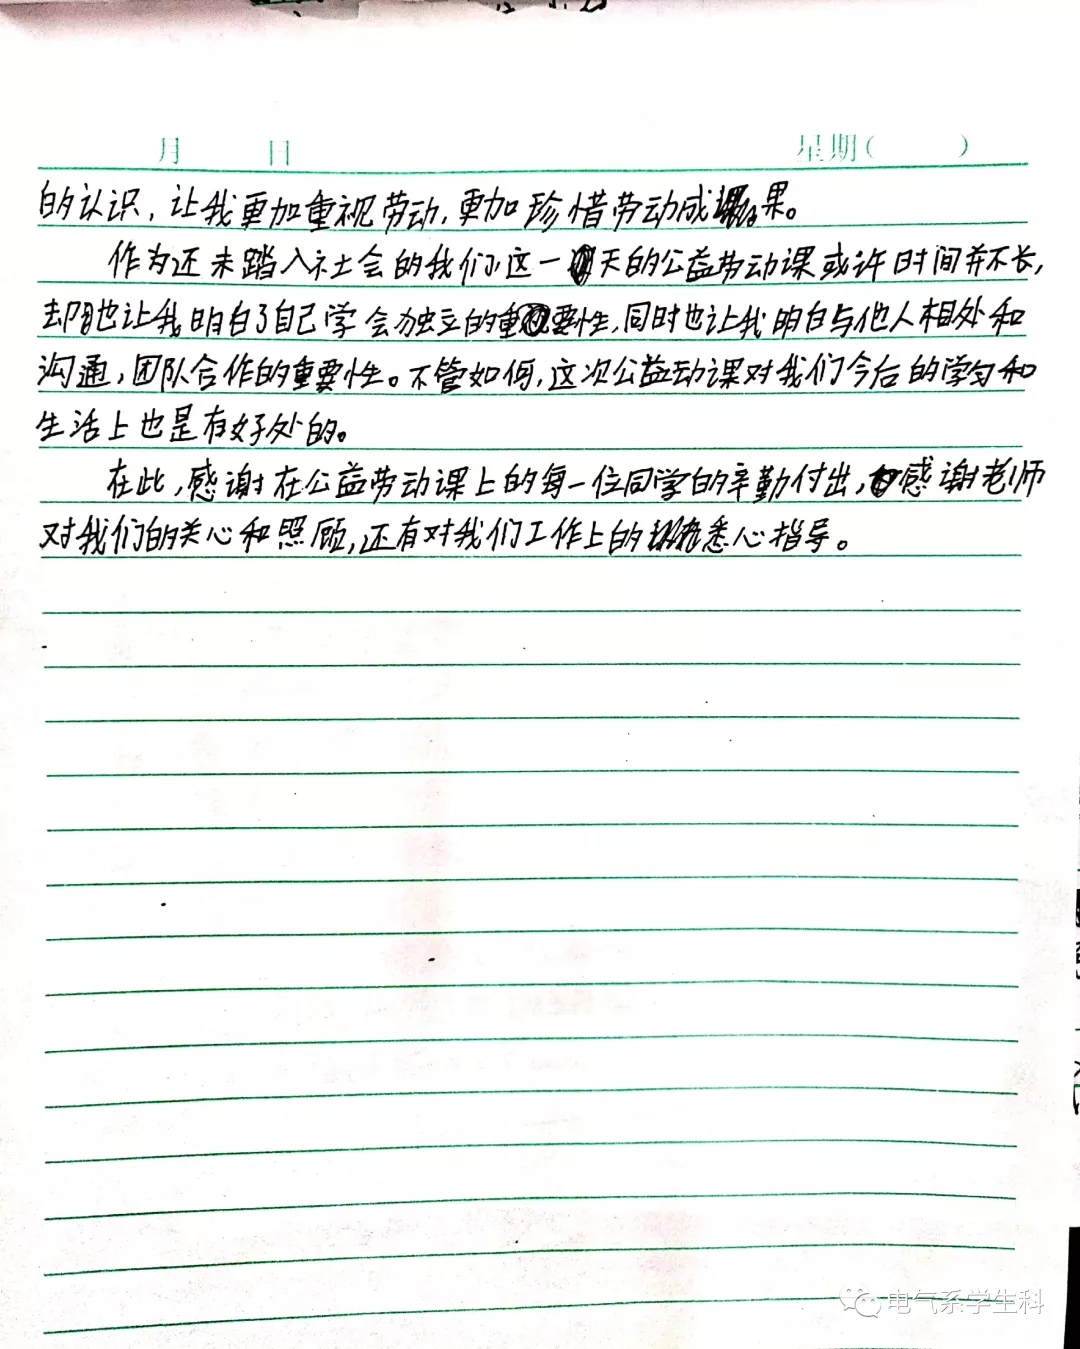 月 日 星期( )
的认识，让我更加重视劳动，更加珍惜劳动成果。
作为还未踏入社会的我们，这一天的公益劳动课或许时间并不长，
却也让我明白了自己学会独立的重要性，同时也让我明白与他人相处和
沟通，团队合作的重要性。不管如何，这次公益动课对我们今后的学习和
生活上也是有好处的。
在此，感谢在公益劳动课上的每一位同学的辛勤付出，感谢老师
对我们的关心和照顾，还有对我们工作上的悉心指导。
电气系学生科